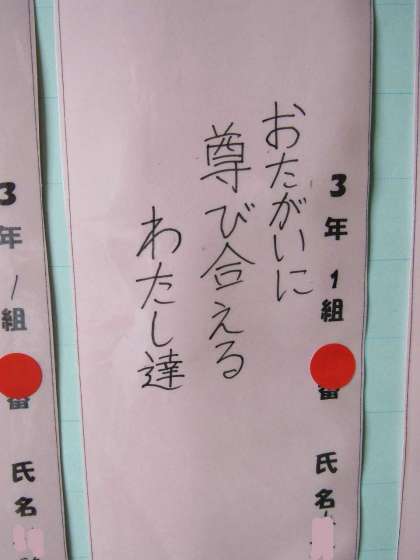 3年1組 番 氏名
おたがいに
尊び合える
わたし達
3年1組 番 氏名